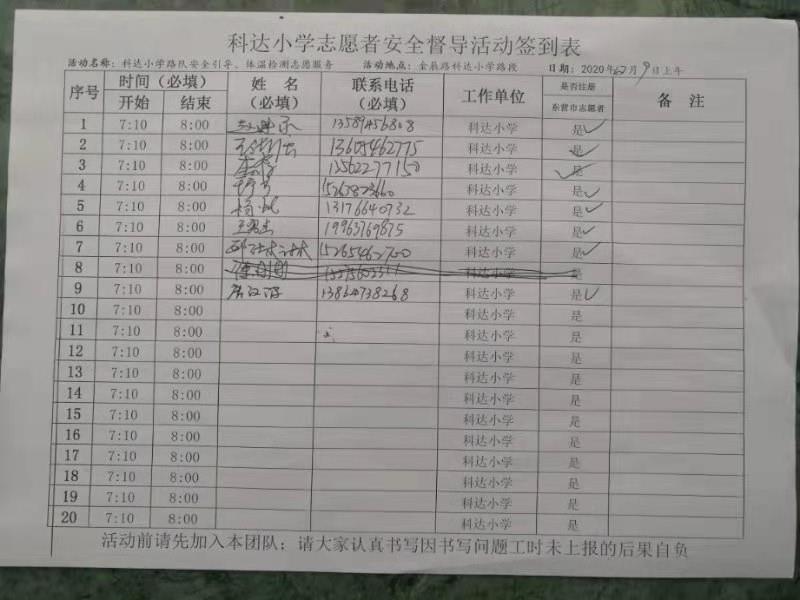 科达小学志愿者安全督导活动签到表
活动名称：科达小学路队安全引导、体温检测志愿服务 活动地点：金辰路科达小学路段 日期：2020年12月9日上午
序号 时间（必填） 开始 结束 姓 名（必填） 联系电话（必填） 工作单位 是否注册东营市志愿者 备 注
1 7:10 8:00 13589456808 科达小学 是✓
2 7:10 8:00 13605462775 科达小学 是✓
3 7:10 8:00 13562277150 科达小学 是✓
4 7:10 8:00 科达小学 是✓
5 7:10 8:00 杨帆 13176640732 科达小学 是✓
6 7:10 8:00 19963769875 科达小学 是✓
7 7:10 8:00 15265462700 科达小学 是✓
8 7:10 8:00 科达小学 是
9 7:10 8:00 13864738268 科达小学 是✓
10 7:10 8:00 科达小学 是
11 7:10 8:00 科达小学 是
12 7:10 8:00 科达小学 是
13 7:10 8:00 科达小学 是
14 7:10 8:00 科达小学 是
15 7:10 8:00 科达小学 是
16 7:10 8:00 科达小学 是
17 7:10 8:00 科达小学 是
18 7:10 8:00 科达小学 是
19 7:10 8:00 科达小学 是
20 7:10 8:00 科达小学 是
活动前请先加入本团队；请大家认真书写因书写问题工时未上报的后果自负